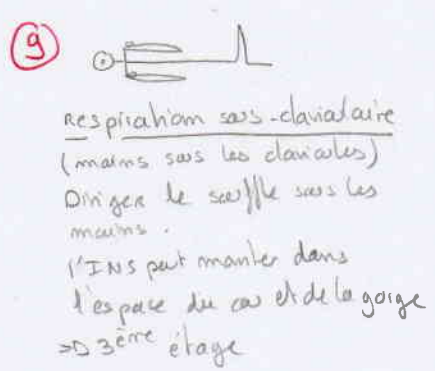 9
Respiration sous-claviculaire
(mains sous les clavicules)
Diriger le souffle sous les
mains.
l'INS peut monter dans
l'espace du cou et de la gorge
=> 3ème étage